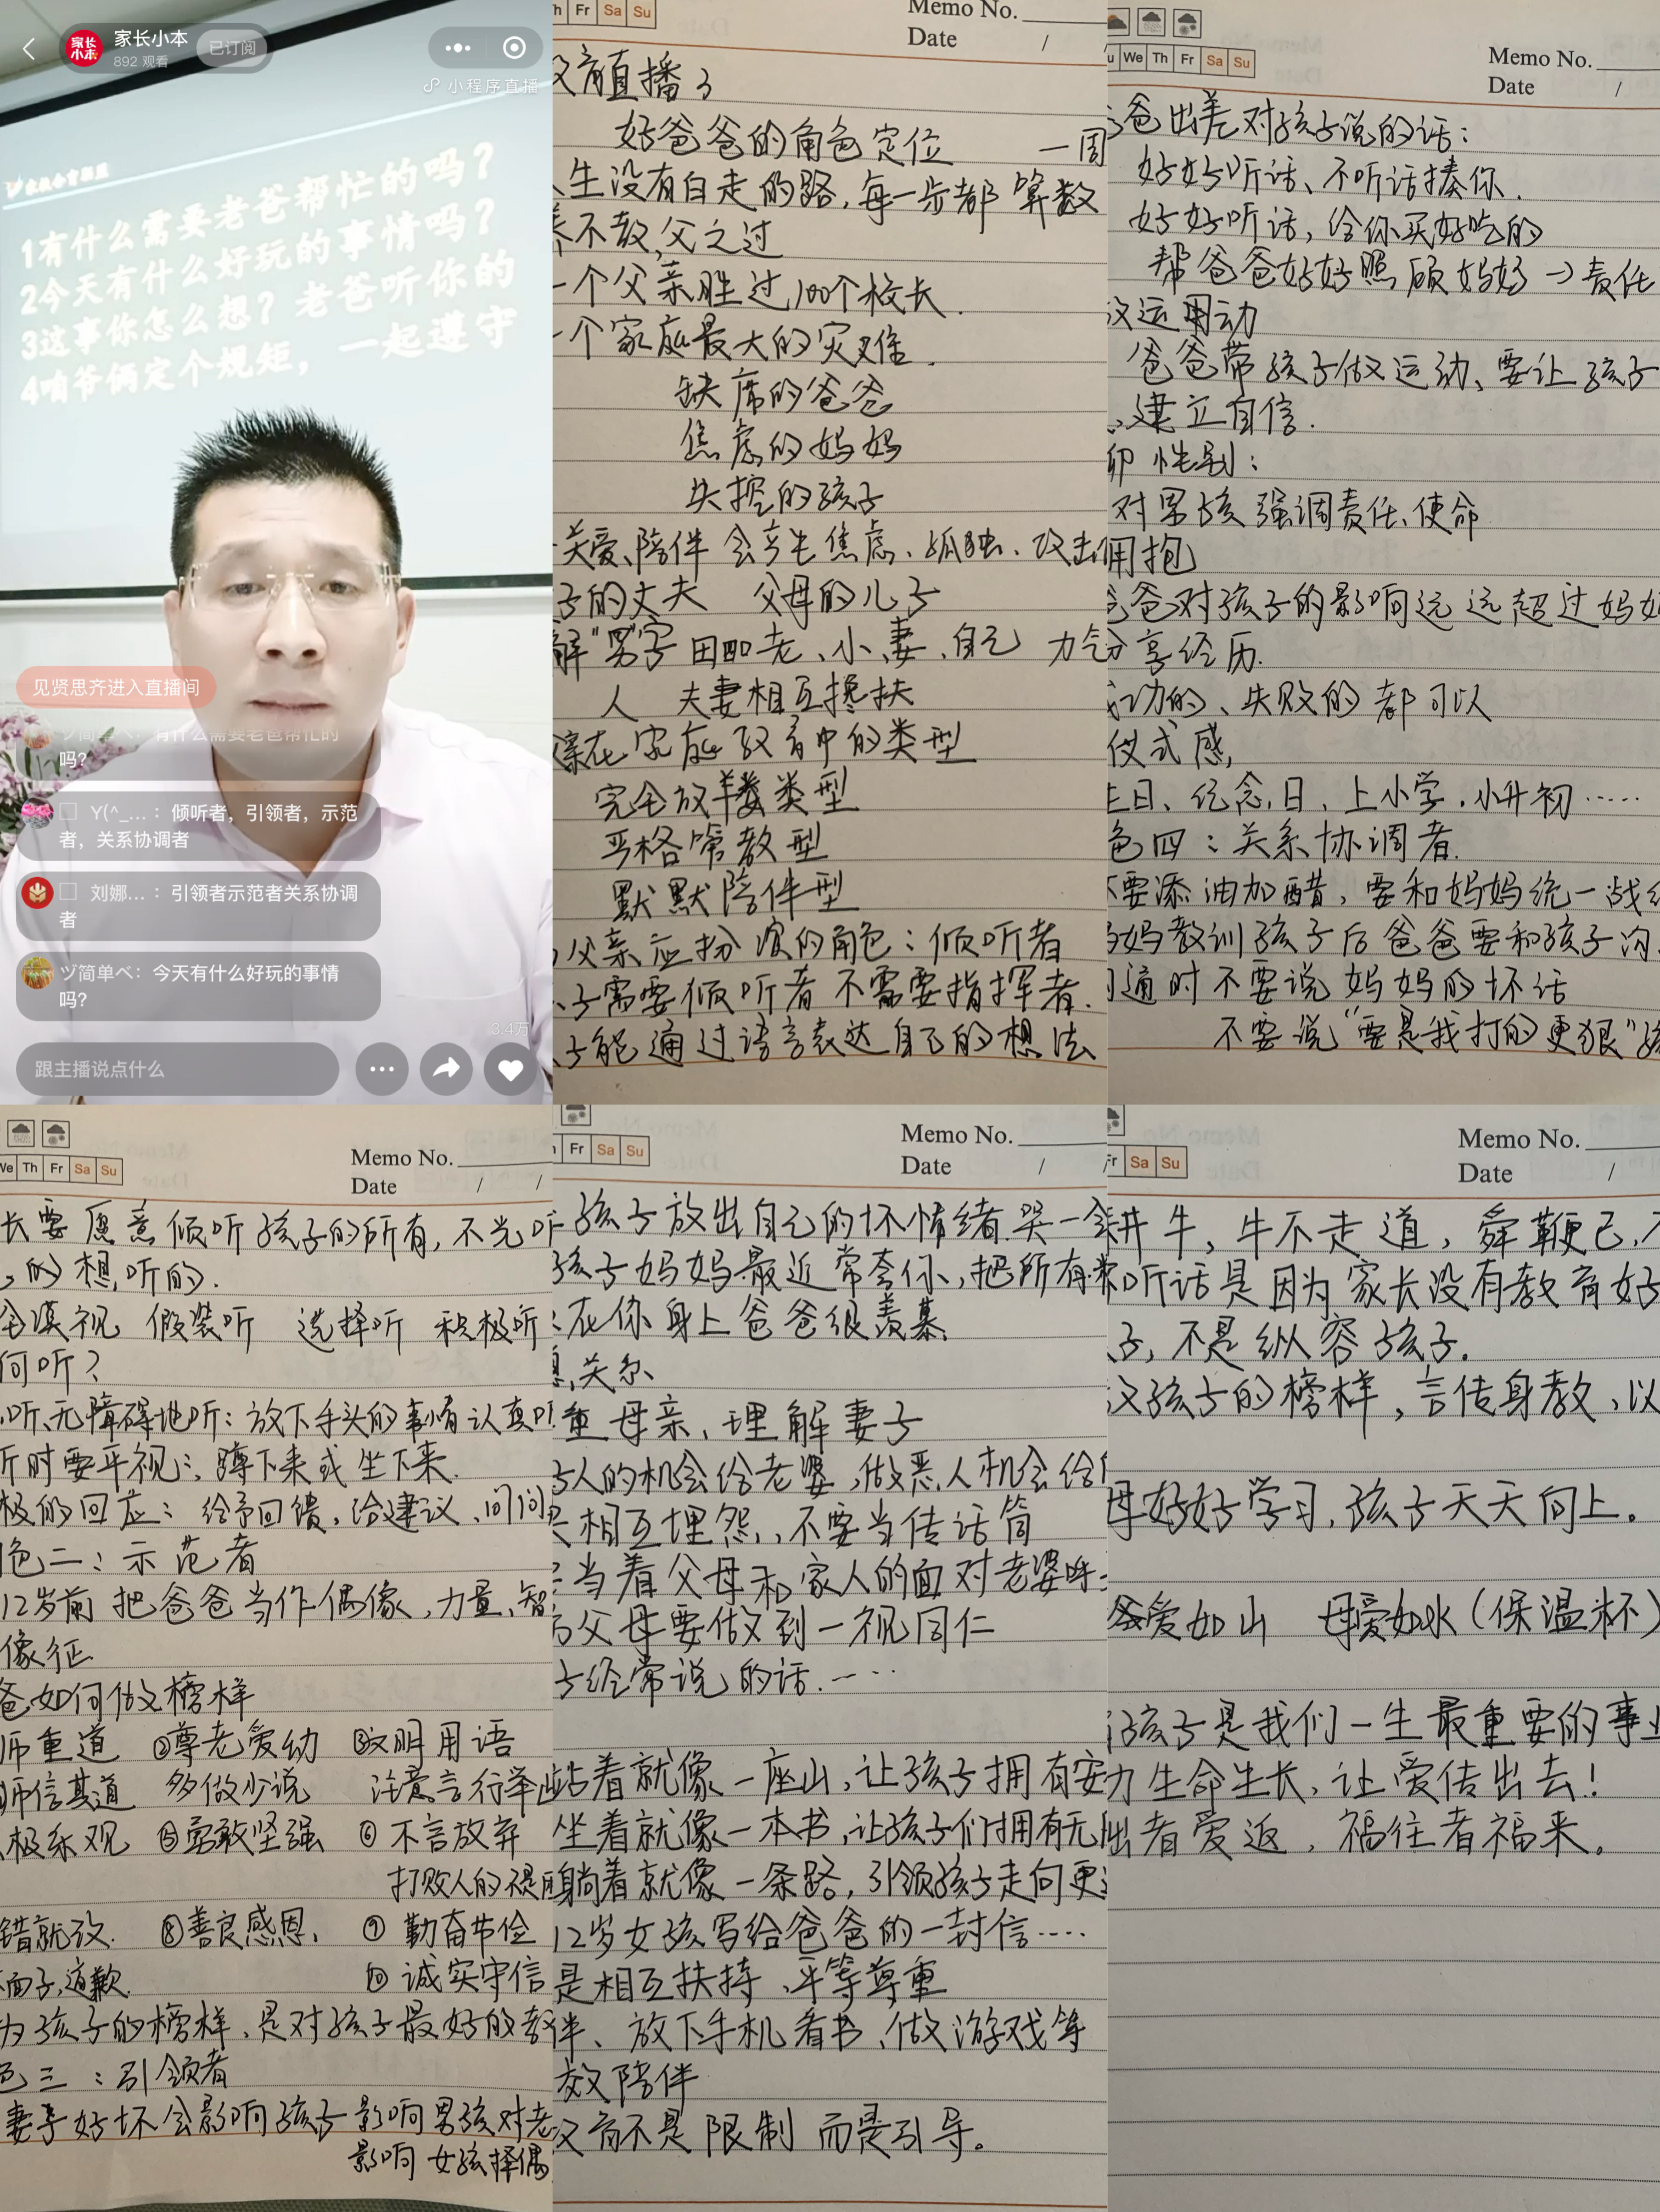 家长小本
892 观看
已订阅
小程序直播
1有什么需要老爸帮忙的吗？
2今天有什么好玩的事情吗？
3这事你怎么想？老爸听你的
4咱爷俩定个规矩，一起遵守
见贤思齐进入直播间
ヅ简单べ：有什么需要老爸帮忙的
吗？
Y(^_...：倾听者，引领者，示范
者，关系协调者
刘娜...：引领者示范者关系协调
者
ヅ简单べ：今天有什么好玩的事情
吗？
3.4万
跟主播说点什么
Fr Sa Su
Memo No.
Date /
直播3
好爸爸的角色定位 一周
生没有白走的路，每一步都算数
不教，父之过
一个父亲胜过100个校长.
一个家庭最大的灾难.
缺席的爸爸
焦虑的妈妈
失控的孩子
关爱、陪伴会产生焦虑、孤独、攻击
子的丈夫 父母的儿子
解"男"字 田四 老、小、妻、自己 力气
人 夫妻相互搀扶
亲在家庭教育中的类型
完全放羊类型
严格管教型
默默陪伴型
父亲应扮演的角色：倾听者
子需要倾听者不需要指挥者.
子能通过语言表达自己的想法
We Th Fr Sa Su
Memo No.
Date /
爸出差对孩子说的话：
好好听话、不听话揍你.
好好听话，给你买好吃的
帮爸爸好好照顾妈妈→责任
运用动
爸爸带孩子做运动、要让孩子
建立自信.
性别：
对男孩强调责任、使命
拥抱
爸爸对孩子的影响远远超过妈妈
分享经历.
成功的、失败的都可以
仪式感,
生日、纪念日、上小学.小升初……
色四：关系协调者.
不要添油加醋，要和妈妈统一战线
妈妈教训孩子后爸爸要和孩子沟
沟通时不要说妈妈的坏话
不要说"要是我打的更狠"
We Th Fr Sa Su
Memo No.
Date / /
长要愿意倾听孩子的所有，不光听
的想听的.
全漠视 假装听 选择听 积极听
何听？
听、无障碍地听：放下手头的事情认真听
听时要平视：蹲下来或坐下来.
极的回应：给予回馈，给建议、问问
角色二：示范者
12岁前把爸爸当作偶像，力量、智
像征
爸如何做榜样
师重道 ②尊老爱幼 ③文明用语
师信其道 多做少说 注意言行举止
极乐观 ⑤勇敢坚强 ⑥不言放弃
打败人的不是
错就改. ⑧善良感恩、 ⑨勤奋节俭
面子，道歉. ⑩诚实守信
为孩子的榜样、是对孩子最好的教
色三：引领者
妻子好坏会影响孩子 影响男孩对老
影响女孩择偶
Fr Sa Su
Memo No.
Date /
孩子放出自己的坏情绪.哭一会
孩子妈妈最近常夸你，把所有
在你身上爸爸很羡慕
关系
重母亲、理解妻子
人的机会给老婆，做恶人机会给
相互埋怨，不要当传话筒
当着父母和家人的面对老婆呼
父母要做到一视同仁
子经常说的话.……
站着就像一座山，让孩子拥有安
坐着就像一本书，让孩子们拥有无
躺着就像一条路，引领孩子走向更
12岁女孩写给爸爸的一封信……
是相互扶持、平等尊重
伴、放下手机看书、做游戏等
效陪伴
教育不是限制而是引导。
Fr Sa Su
Memo No.
Date /
耕牛，牛不走道，舜鞭己，
听话是因为家长没有教育好
子，不是纵容孩子.
孩子的榜样，言传身教、以
母好好学习，孩子天天向上。
爸爱如山 母爱如水（保温杯）
孩子是我们一生最重要的事业
力生命生长，让爱传出去！
出者爱返，福往者福来。